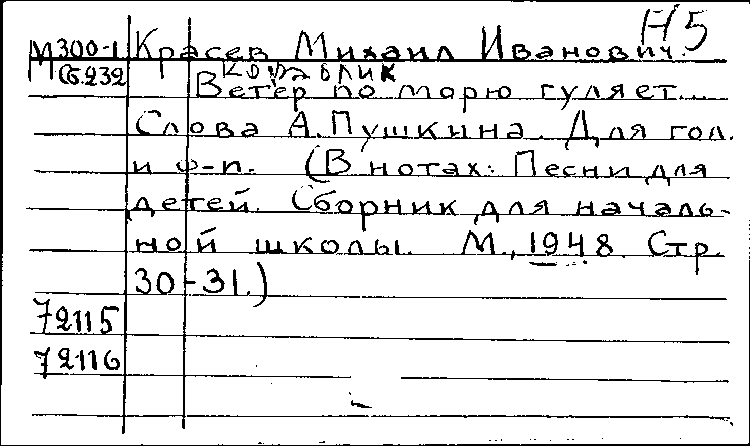 Н5
М300-1 Красев Михаил Иванович.
Сб.232 Кораблик
Ветер по морю гуляет...
Слова А. Пушкина. Для гол.
и ф-п. (В нотах: Песни для
детей. Сборник для началь-
ной школы. М., 1948. Стр.
30-31.)
72115
72116